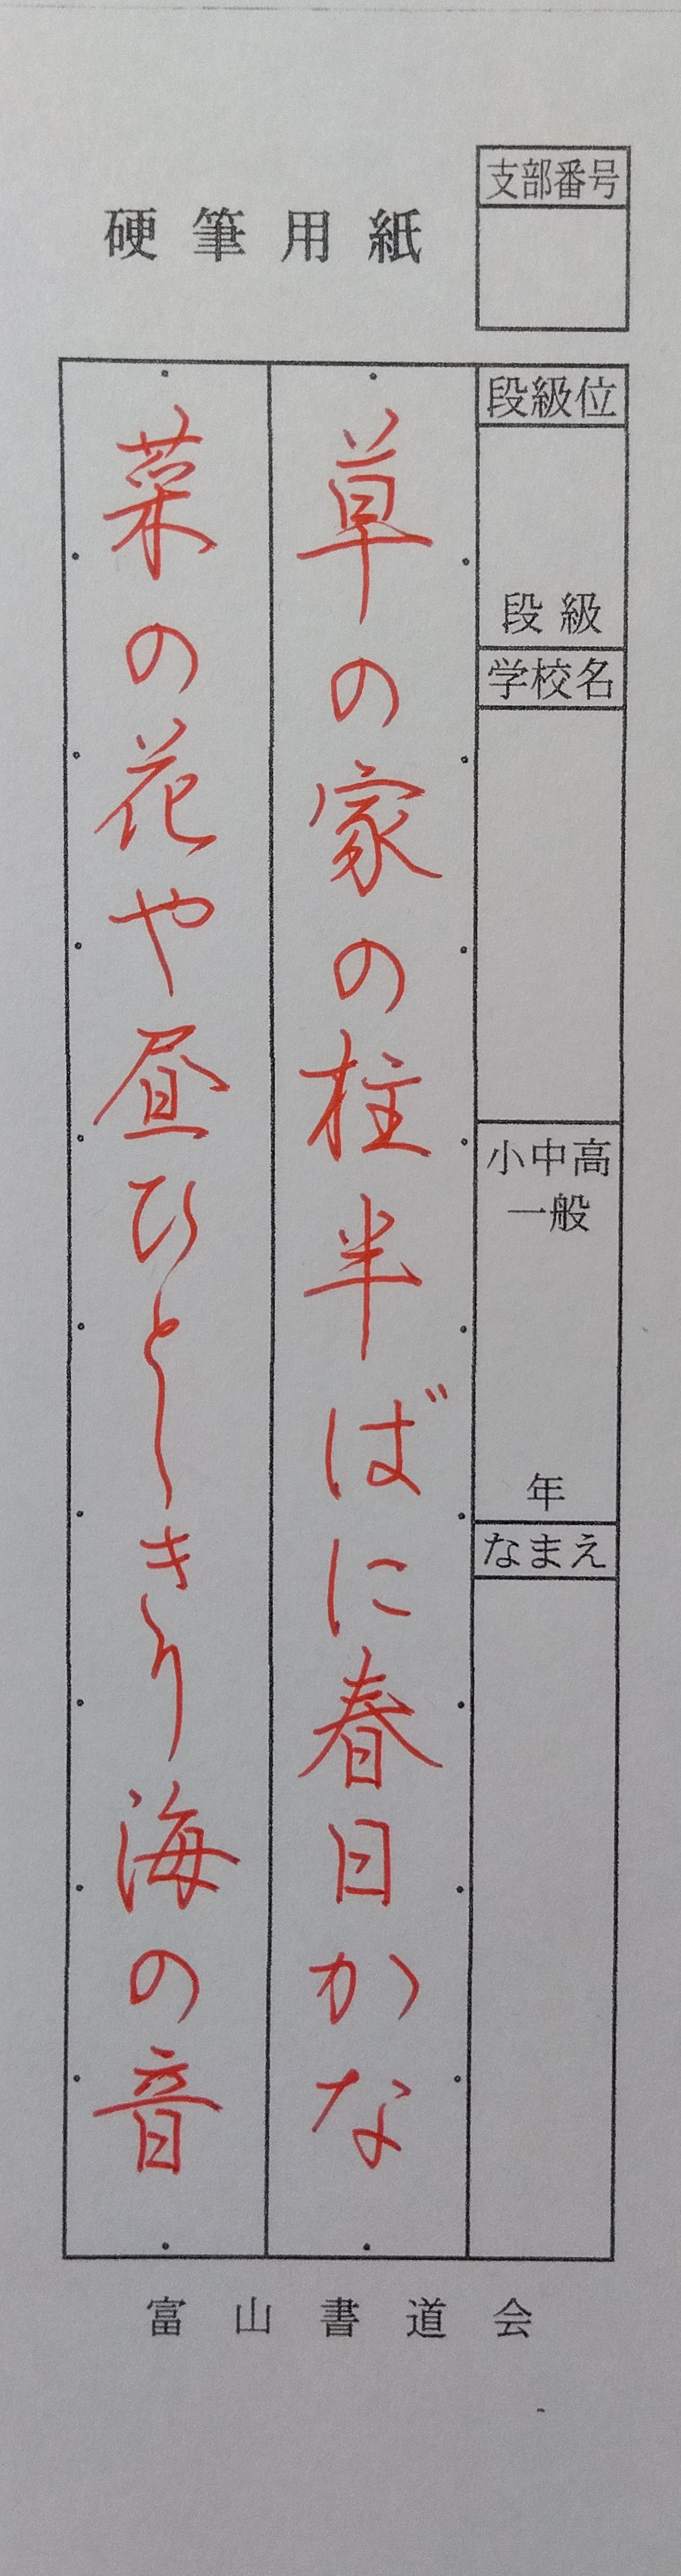 硬筆用紙
支部番号
段級位
段級
学校名
小中高
一般
年
なまえ
草の家の柱半ばに春日かな
菜の花や昼ひとしきり海の音
富山書道会